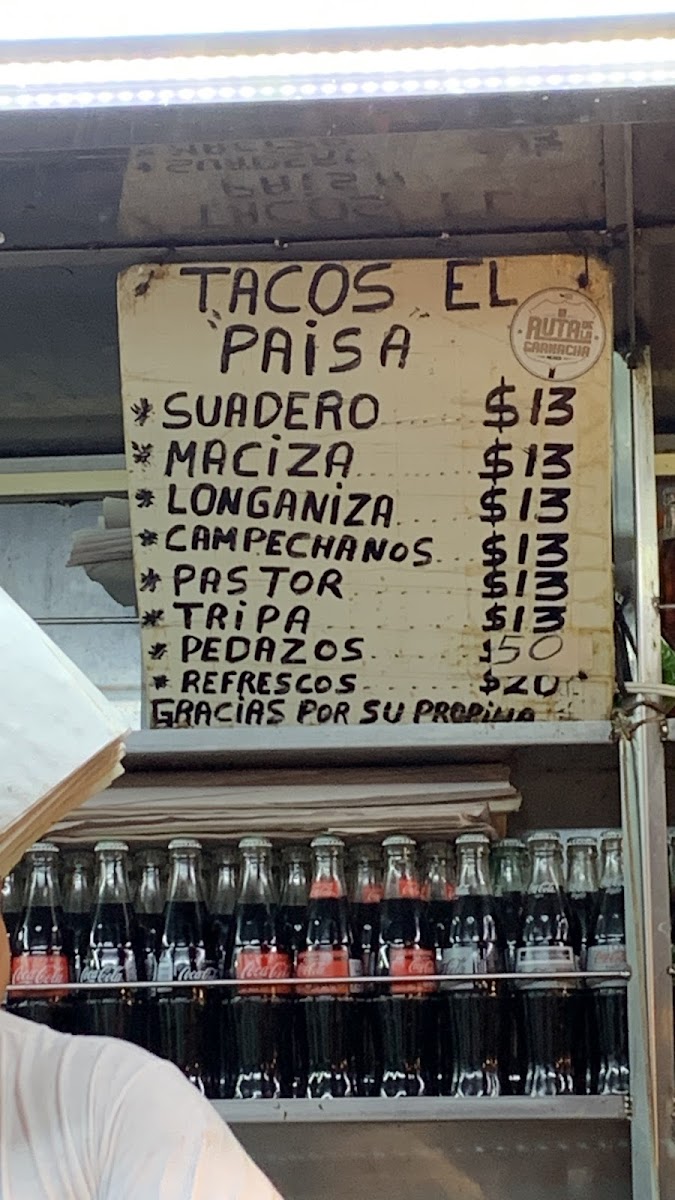 TACOS EL
PAISA
RUTA DE LA
GARNACHA
* SUADERO.... $13
* MACIZA........ $13
* LONGANIZA.... $13
* CAMPECHANOS... $13
* PASTOR........ $13
* TRIPA......... $13
* PEDAZOS....... $50
* REFRESCOS..... $20
GRACIAS POR SU PROPINA
Coca-Cola
Coca-Cola
Coca-Cola
Coca-Cola